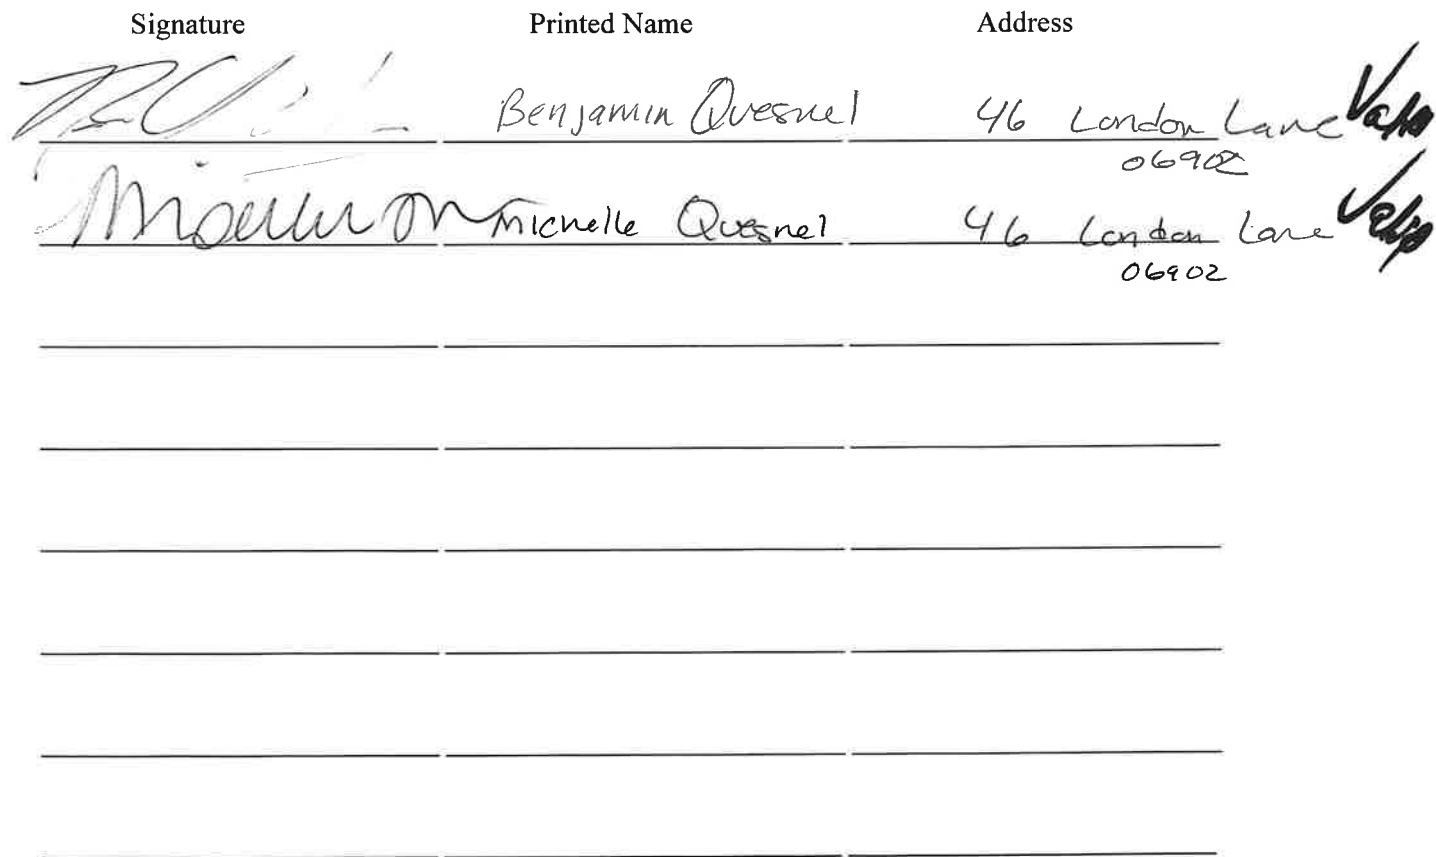 Signature Printed Name Address
Benjamin Quesnel 46 London Lane
06902
Michelle Quesnel 46 London Lane
06902